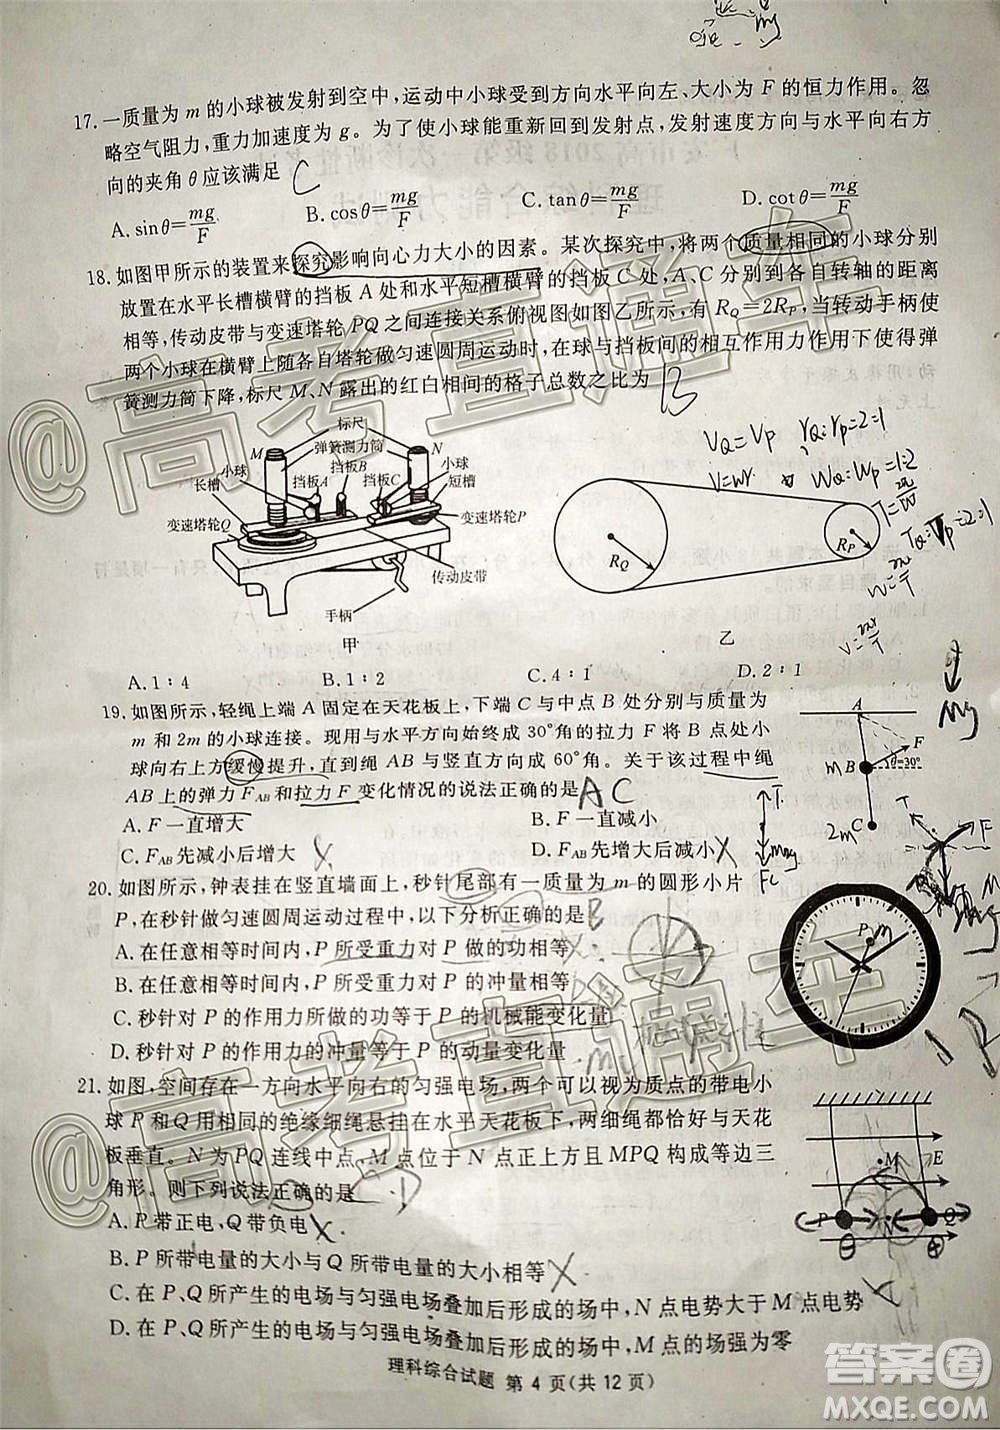 17.一质量为 m 的小球被发射到空中,运动中小球受到方向水平向左、大小为 F 的恒力作用。忽
略空气阻力,重力加速度为 g。为了使小球能重新回到发射点,发射速度方向与水平向右方
向的夹角 θ 应该满足 C
A.sinθ=mg/F B.cosθ=mg/F C.tanθ=mg/F D.cotθ=mg/F
18.如图甲所示的装置来探究影响向心力大小的因素。某次探究中,将两个质量相同的小球分别
放置在水平长槽横臂的挡板 A 处和水平短槽横臂的挡板 C 处,A、C 分别到各自转轴的距离
相等,传动皮带与变速塔轮 PQ 之间连接关系俯视图如图乙所示,有 R_Q=2R_P,当转动手柄使
两个小球在横臂上随各自塔轮做匀速圆周运动时,在球与挡板间的相互作用力作用下使弹
簧测力筒下降,标尺 M、N 露出的红白相间的格子总数之比为 B
标尺
M 弹簧测力筒 N
小球 挡板B 小球
长槽 挡板A 挡板C 短槽
变速塔轮Q 变速塔轮P
传动皮带
手柄
甲
R_Q R_P
乙
A.1∶4 B.1∶2 C.4∶1 D.2∶1
19.如图所示,轻绳上端 A 固定在天花板上,下端 C 与中点 B 处分别与质量为
m 和 2m 的小球连接。现用与水平方向始终成 30°角的拉力 F 将 B 点处小
球向右上方缓慢提升,直到绳 AB 与竖直方向成 60°角。关于该过程中绳
AB 上的弹力 F_AB 和拉力 F 变化情况的说法正确的是 AC
A.F 一直增大 B.F 一直减小
C.F_AB 先减小后增大 D.F_AB 先增大后减小
A
F
mB θ=30°
2m C
20.如图所示,钟表挂在竖直墙面上,秒针尾部有一质量为 m 的圆形小片
P,在秒针做匀速圆周运动过程中,以下分析正确的是 B
A.在任意相等时间内,P 所受重力对 P 做的功相等
B.在任意相等时间内,P 所受重力对 P 的冲量相等
C.秒针对 P 的作用力所做的功等于 P 的机械能变化量
D.秒针对 P 的作用力的冲量等于 P 的动量变化量
P m
21.如图,空间存在一方向水平向右的匀强电场,两个可以视为质点的带电小
球 P 和 Q 用相同的绝缘细绳悬挂在水平天花板下,两细绳都恰好与天花
板垂直。N 为 PQ 连线中点,M 点位于 N 点正上方且 MPQ 构成等边三
角形。则下列说法正确的是 CD
A.P 带正电,Q 带负电
B.P 所带电量的大小与 Q 所带电量的大小相等
C.在 P、Q 所产生的电场与匀强电场叠加后形成的场中,N 点电势大于 M 点电势
D.在 P、Q 所产生的电场与匀强电场叠加后形成的场中,M 点的场强为零
M E
P N Q
理科综合试题 第 4 页(共 12 页)
@高考直通车
@高考直通车
答案圈
MXQE.COM